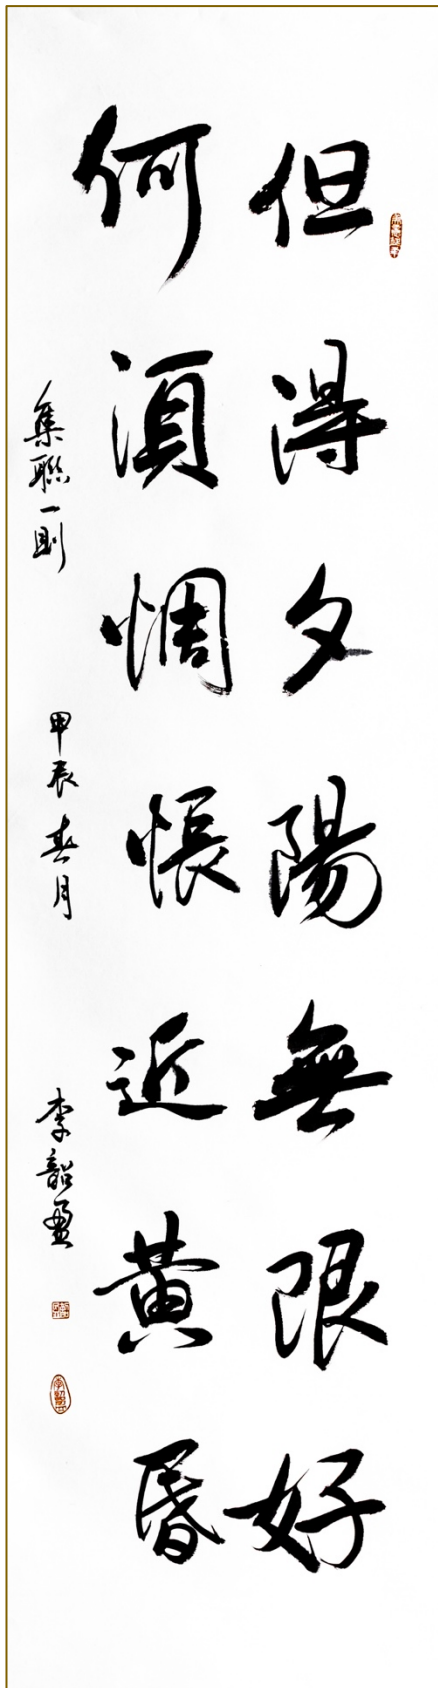 但得夕陽無限好
何須惆悵近黄昏
集聯一則 甲辰春月 李韶盈